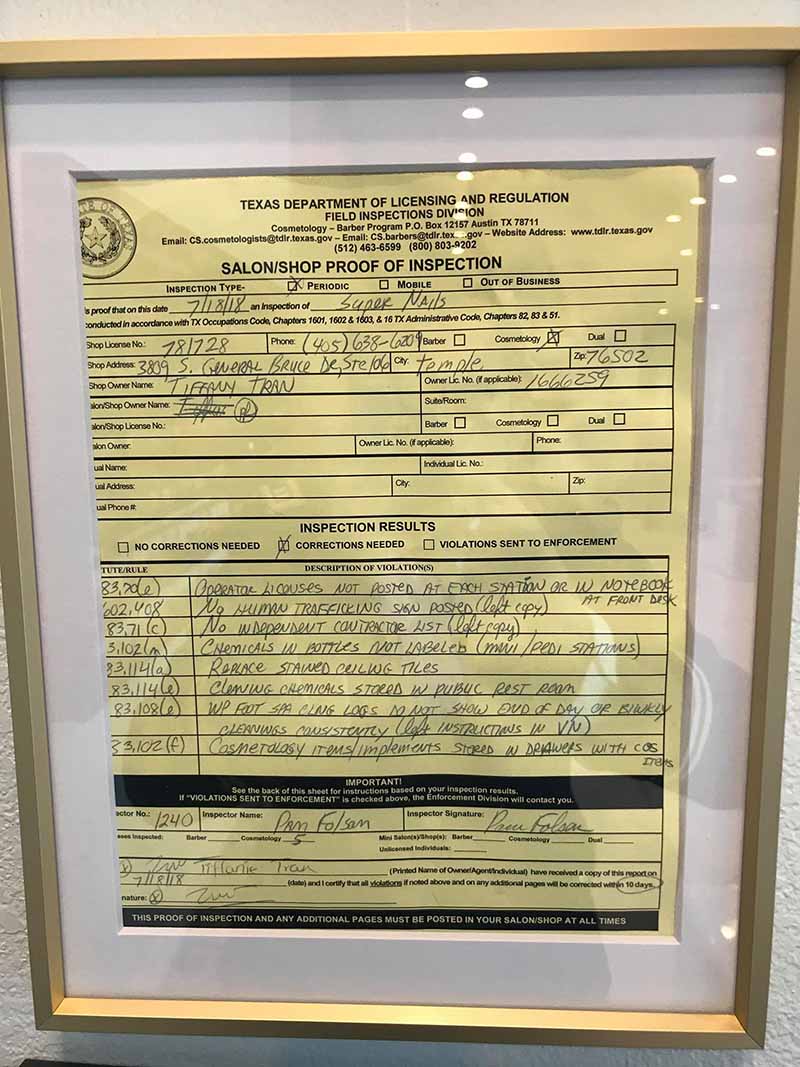 TEXAS DEPARTMENT OF LICENSING AND REGULATION
FIELD INSPECTIONS DIVISION
Cosmetology – Barber Program P.O. Box 12157 Austin TX 78711
Email: CS.cosmetologists@tdlr.texas.gov – Email: CS.barbers@tdlr.tex gov – Website Address: www.tdlr.texas.gov
(512) 463-6599 (800) 803-9202
SALON/SHOP PROOF OF INSPECTION
INSPECTION TYPE- PERIODIC MOBILE OUT OF BUSINESS
s proof that on this date 7/18/18 an inspection of Super Nails
conducted in accordance with TX Occupations Code, Chapters 1601, 1602 & 1603, & 16 TX Administrative Code, Chapters 82, 83 & 51.
Shop License No.: 781728 Phone: (405) 638-6209 Barber Cosmetology Dual
Shop Address: 3809 S. General Bruce Dr, Ste 106 City: Temple Zip: 76502
Shop Owner Name: TIFFANY TRAN Owner Lic. No. (if applicable): 1666259
alon/Shop Owner Name: Suite/Room:
alon/Shop License No.: Barber Cosmetology Dual
alon Owner: Owner Lic. No. (if applicable): Phone:
ual Name: Individual Lic. No.:
ual Address: City: Zip:
ual Phone #:
INSPECTION RESULTS
NO CORRECTIONS NEEDED CORRECTIONS NEEDED VIOLATIONS SENT TO ENFORCEMENT
TUTE/RULE DESCRIPTION OF VIOLATION(S)
83.70(e) OPERATOR LICENSES NOT POSTED AT EACH STATION OR IN NOTEBOOK
AT FRONT DESK
602.408 NO HUMAN TRAFFICKING SIGN POSTED (left copy)
83.71(c) NO INDEPENDENT CONTRACTOR LIST (left copy)
3.102(m) CHEMICALS IN BOTTLES NOT LABELED (MANI/PEDI STATIONS)
83.114(a) REPLACE STAINED CEILING TILES
83.114(e) CLEANING CHEMICALS STORED IN PUBLIC REST ROOM
83.108(e) WP FOOT SPA CLNG LOGS DO NOT SHOW END OF DAY OR BIWKLY
CLEANINGS CONSISTENTLY (left INSTRUCTIONS IN VN)
83.102(f) COSMETOLOGY ITEMS/IMPLEMENTS STORED IN DRAWERS WITH COS
ITEMS
IMPORTANT!
See the back of this sheet for instructions based on your inspection results.
If "VIOLATIONS SENT TO ENFORCEMENT" is checked above, the Enforcement Division will contact you.
ector No.: 1240 Inspector Name: PAM FOLSOM Inspector Signature: Pam Folsom
ses Inspected: Barber Cosmetology 5 Mini Salon(s)/Shop(s): Barber Cosmetology Dual
Unlicensed Individuals:
Tiffanie Tran (Printed Name of Owner/Agent/Individual) have received a copy of this report on
7/18/18 (date) and I certify that all violations if noted above and on any additional pages will be corrected within 10 days.
nature:
THIS PROOF OF INSPECTION AND ANY ADDITIONAL PAGES MUST BE POSTED IN YOUR SALON/SHOP AT ALL TIMES